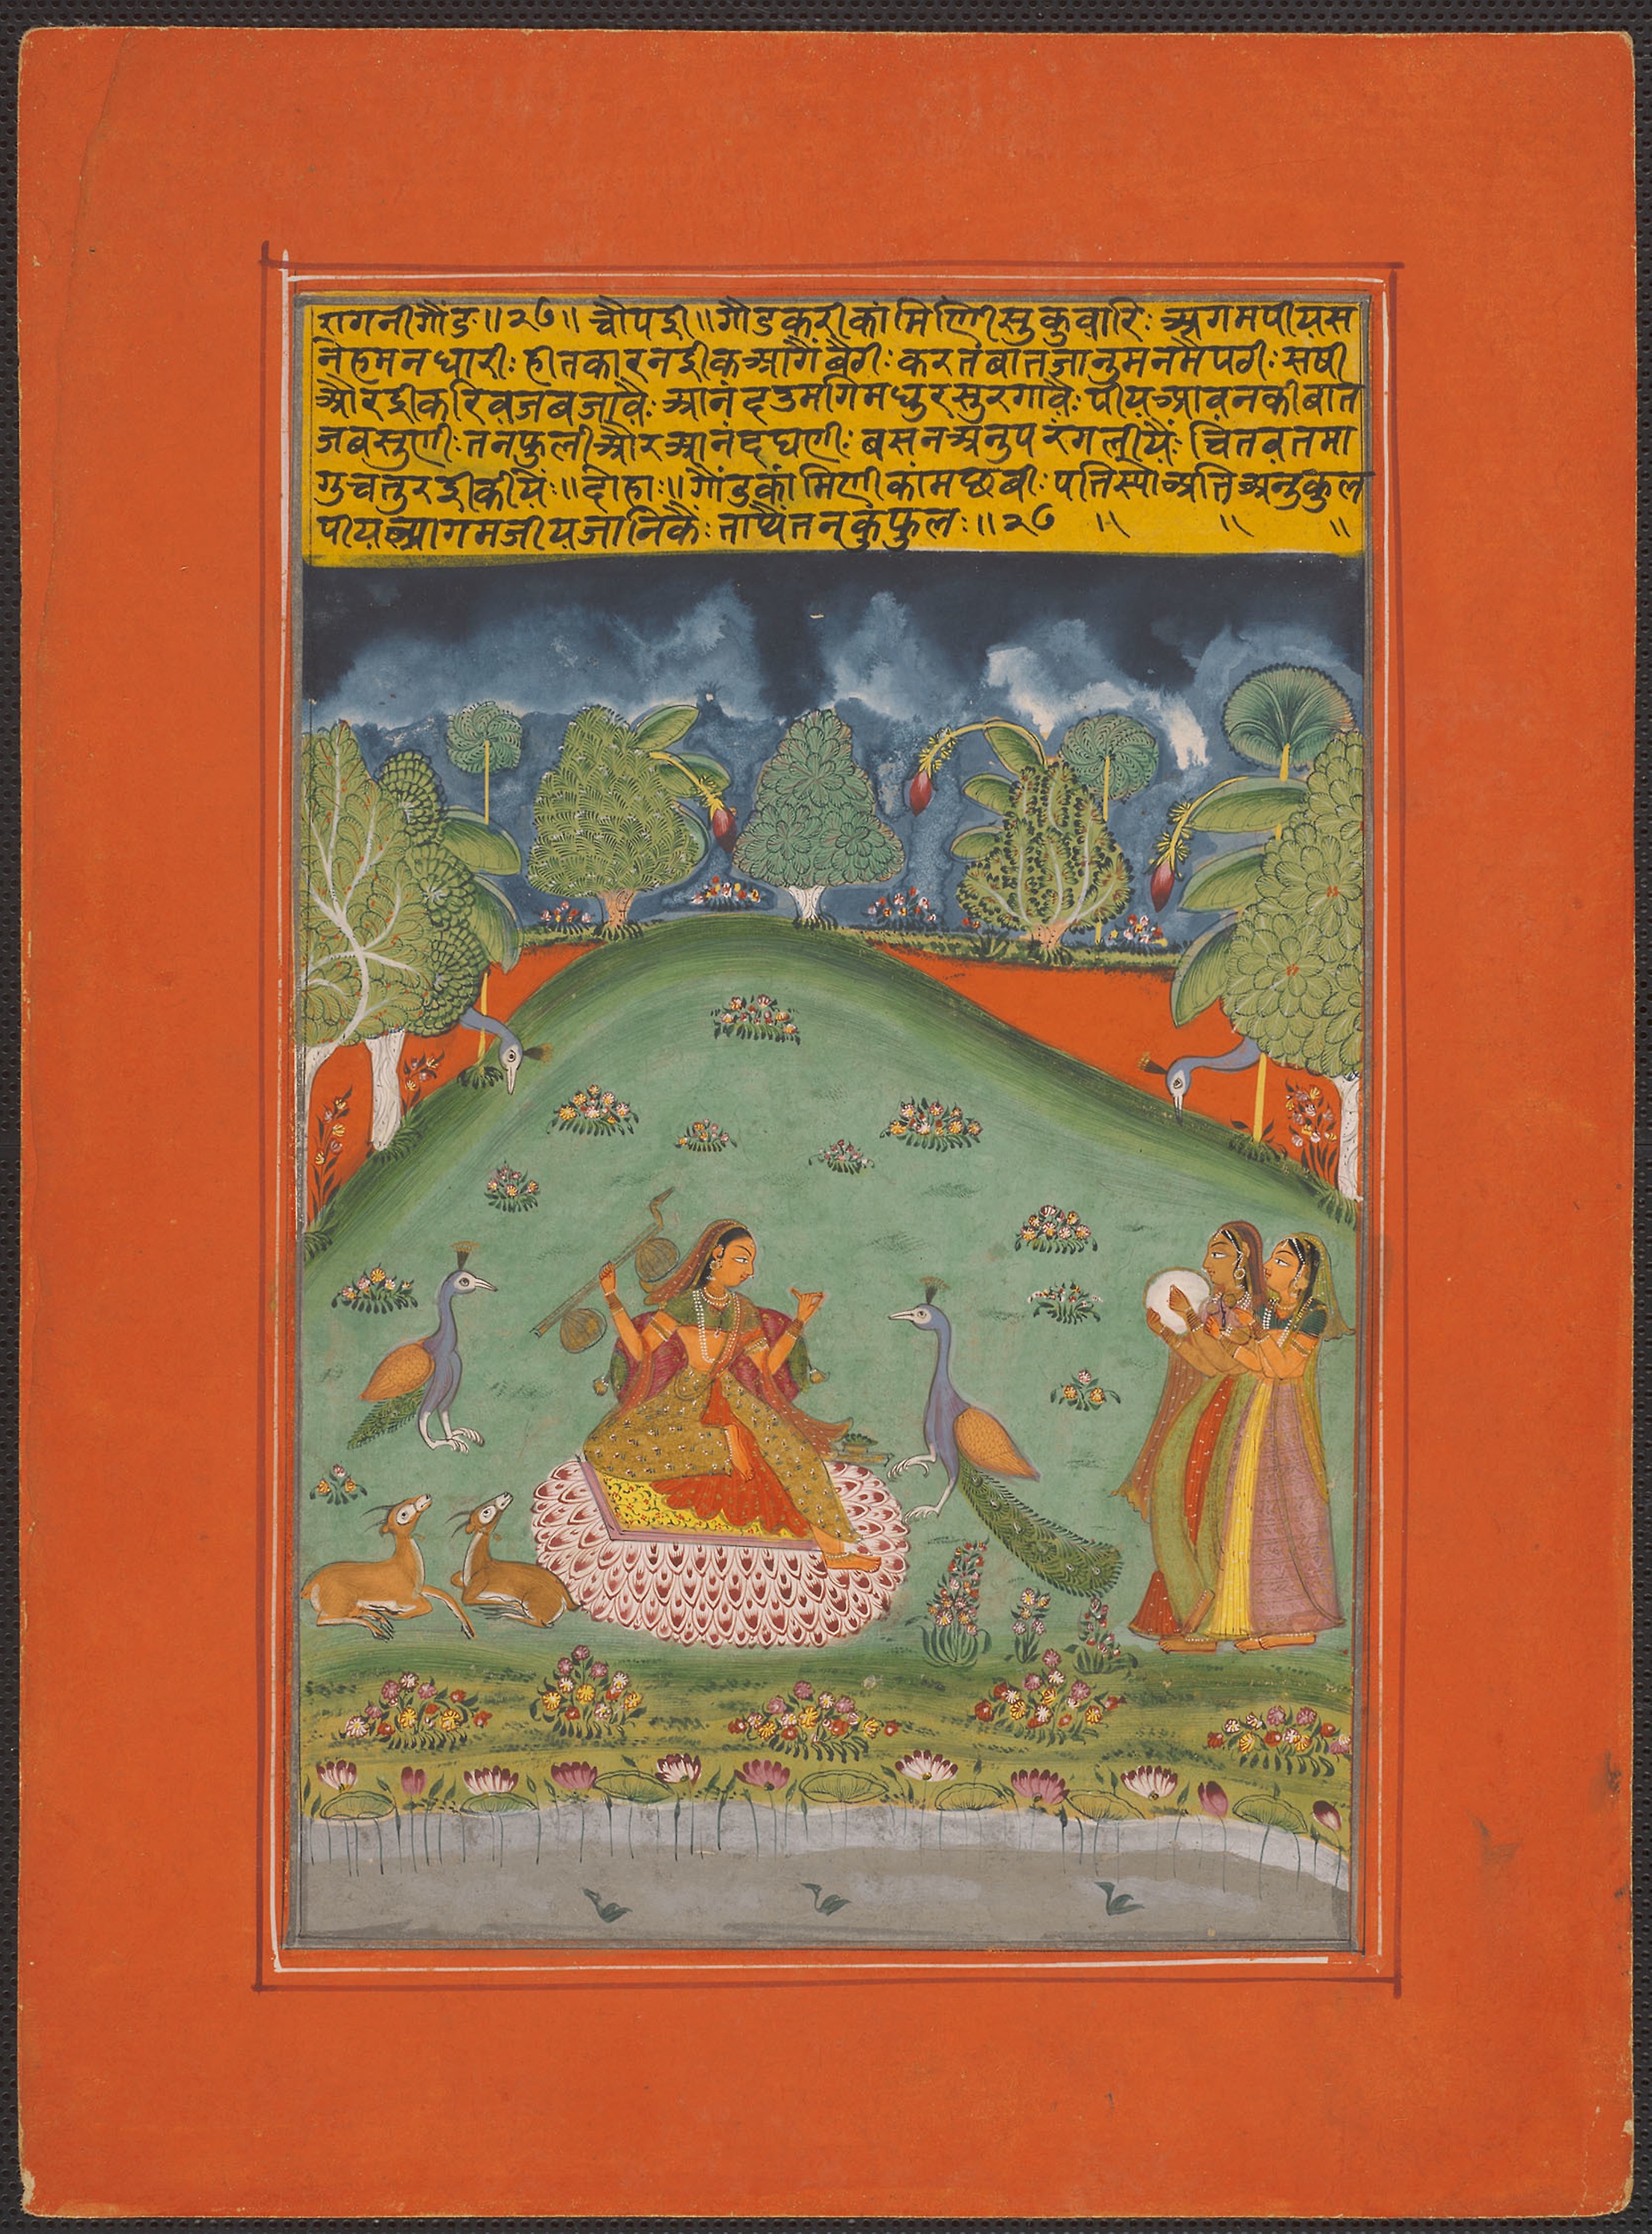 रागनीगौंड॥२७॥ चौपई॥गौंडकरीकांमिणीसुकुवारि: अगमपीयस
नेहमनधारी: हीतकारनईकआगैंबैठी: करतंबातजानुमनमैपठी: सषी
औरईकरिवजंबजावै: आनंदउमगिमधुरसुरगावै: पीयआवनकीबात
जबसुणी: तनफुलीऔरआनंदघणी: बसनअनुपरंगलीयै: चितवतमा
गुचतुरईकीयें:॥दोहा:॥गौंडकांमिणीकांमछबी: पतिस्यौअतिअनुकुल
पीयआगमजीयजानिकै: ताथैतनकुंफुल:॥२७ ॥ ॥ ॥